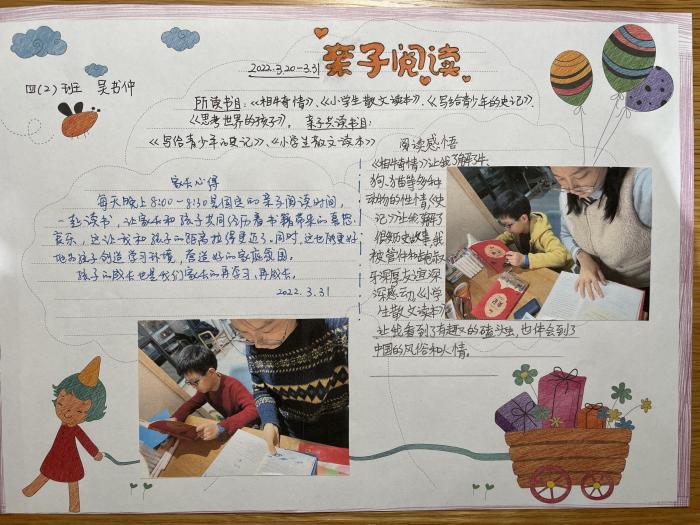 亲子阅读
2022.3.20-3.31
四(2)班 吴书仲
所读书目:《相牛奇情》、《小学生散文读本》、《写给青少年的史记》、
《思考世界的孩子》。亲子共读书目:
《写给青少年的史记》、《小学生散文读本》
家长心得
每天晚上8:00-8:30是固定的亲子阅读时间,
一起读书,让家长和孩子共同经历着书籍带来的喜怒
哀乐,这让我和孩子的距离拉得更近了。同时,这也能更好
地为孩子创造学习环境,营造好的家庭氛围。
孩子的成长也是我们家长的再学习、再成长。
2022.3.31
阅读感悟
《相牛奇情》让我了解了牛、
狗、猫等多种
动物的性情,《史
记》让我了解了
很多历史故事,我
被管仲和鲍叔
牙深厚友谊深
深感动。《小学
生散文读本》
让我看到了有趣的磕头虫,也体会到了
中国的风俗和人情。